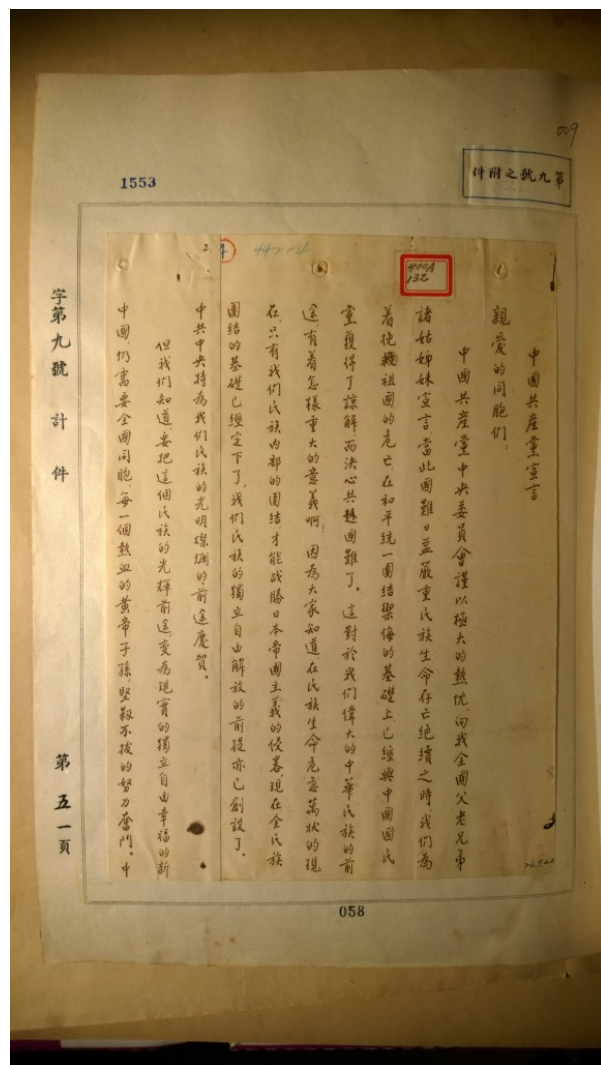 009
第九號之附件
1553
400A
132
442-4
2.
中國共產黨宣言
親愛的同胞們：
中國共產黨中央委員會謹以極大的熱忱向我全國父老兄弟
諸姑姊妹宣言當此國難日益嚴重民族生命存亡絕續之時我們為
着挽救祖國的危亡在和平統一團結禦侮的基礎上已經與中國國民
黨獲得了諒解而決心共赴國難了。這對於我們偉大的中華民族的前
途有着怎樣重大的意義啊！因為大家知道在民族生命危急萬狀的現
在，只有我們民族內部的團結，才能战勝日本帝國主義的侵畧，現在全民族
團結的基礎已經定下了，我們民族的獨立自由解放的前提亦已創設了。
中共中央特為我們民族的光明燦爛的前途慶賀。
但我們知道，要把這個民族的光輝前途，变為現實的獨立自由幸福的新
中國，仍需要全國同胞，每一個熱血的黃帝子孫，堅韌不拔的努力奮鬥。中
字第九號 計 件
第五一頁
058